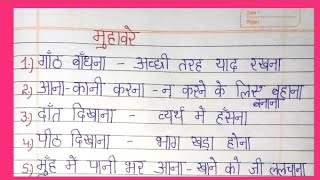 मुहावरे
1.) गाँठ बाँधना - अच्छी तरह याद रखना
2.) आना-कानी करना - न करने के लिए बहाना
बनाना
3.) दाँत दिखाना - व्यर्थ में हँसना
4.) पीठ दिखाना - भाग खड़ा होना
5.) मुँह में पानी भर आना - खाने को जी ललचाना